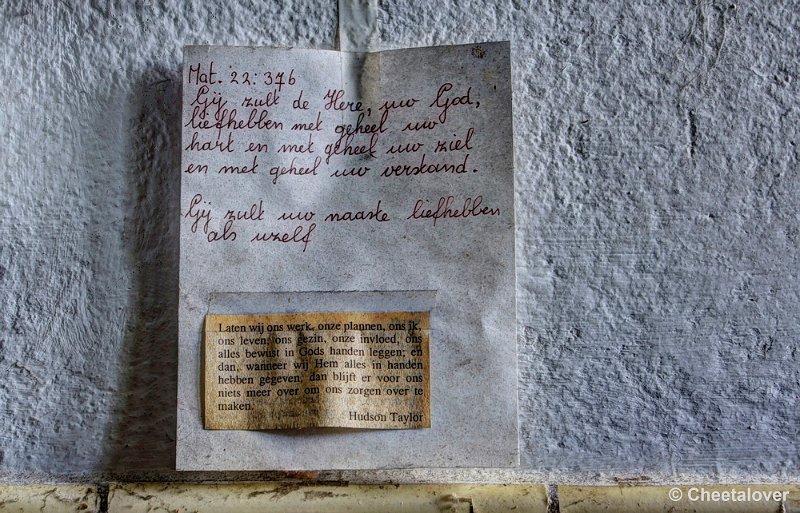 Mat. 22:37b
Gij zult de Here, uw God,
liefhebben met geheel uw
hart en met geheel uw ziel
en met geheel uw verstand.
Gij zult uw naaste liefhebben
als uzelf
Laten wij ons werk, onze plannen, ons ik,
ons leven, ons gezin, onze invloed, ons
alles bewust in Gods handen leggen; en
dan, wanneer wij Hem alles in handen
hebben gegeven, dan blijft er voor ons
niets meer over om ons zorgen over te
maken.
Hudson Taylor
© Cheetalover